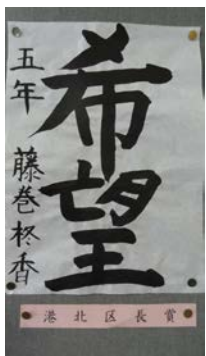 希望
五年 藤巻柊香
港北区長賞